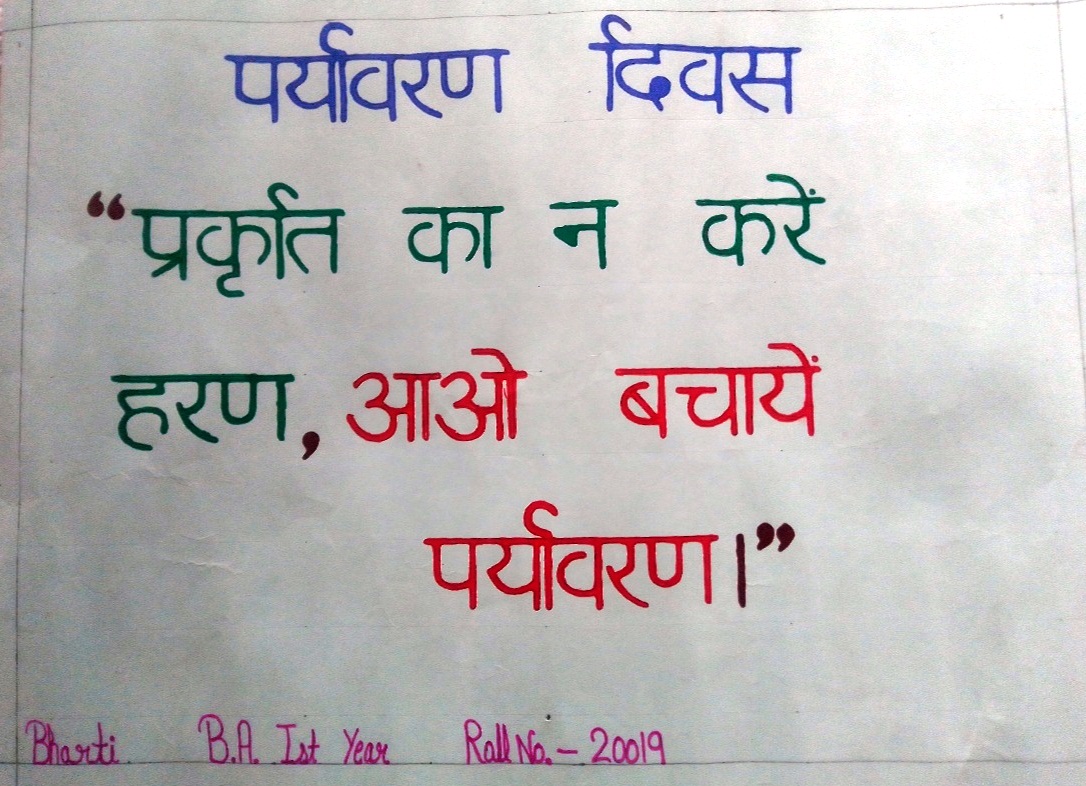 पर्यावरण दिवस
“प्रकृति का न करें
हरण, आओ बचायें
पर्यावरण।”
Bharti B.A. Ist Year Roll No. - 20019